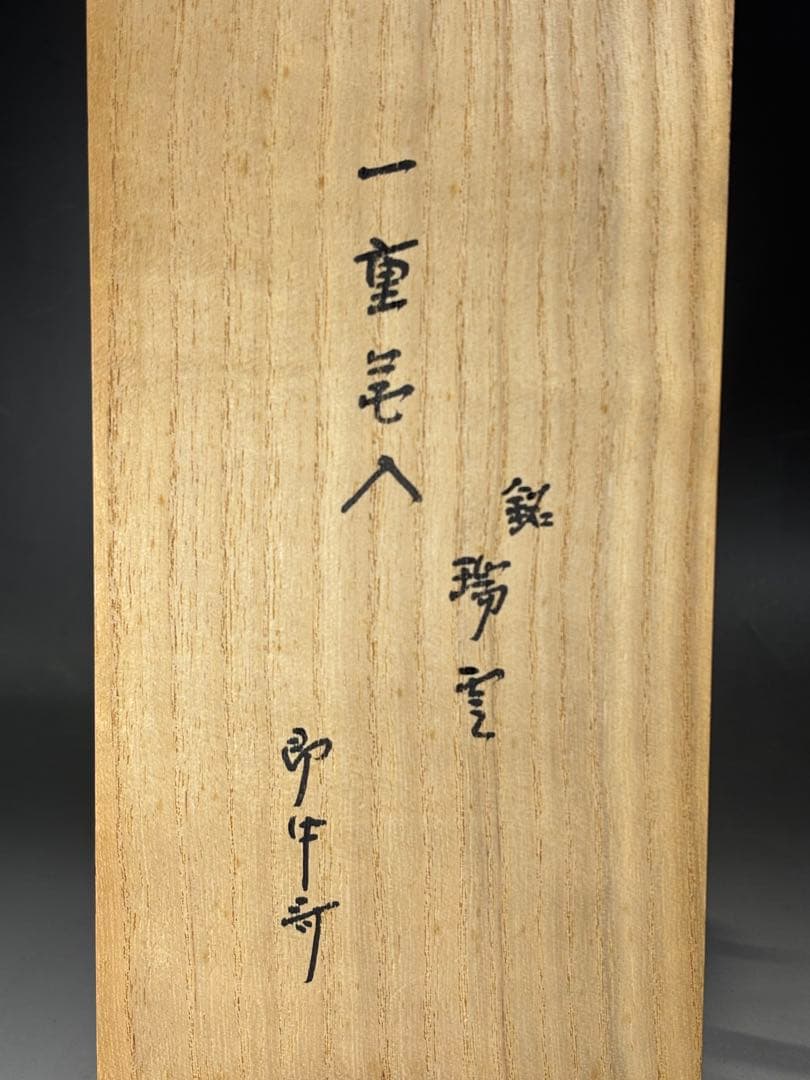 一重花入
銘 瑞雲
即中斎